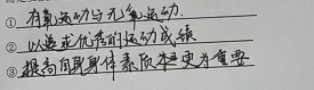 ① 有氧运动与无氧运动.
② 以追求优秀的运动成绩
③ 提高自身身体素质本是更为重要